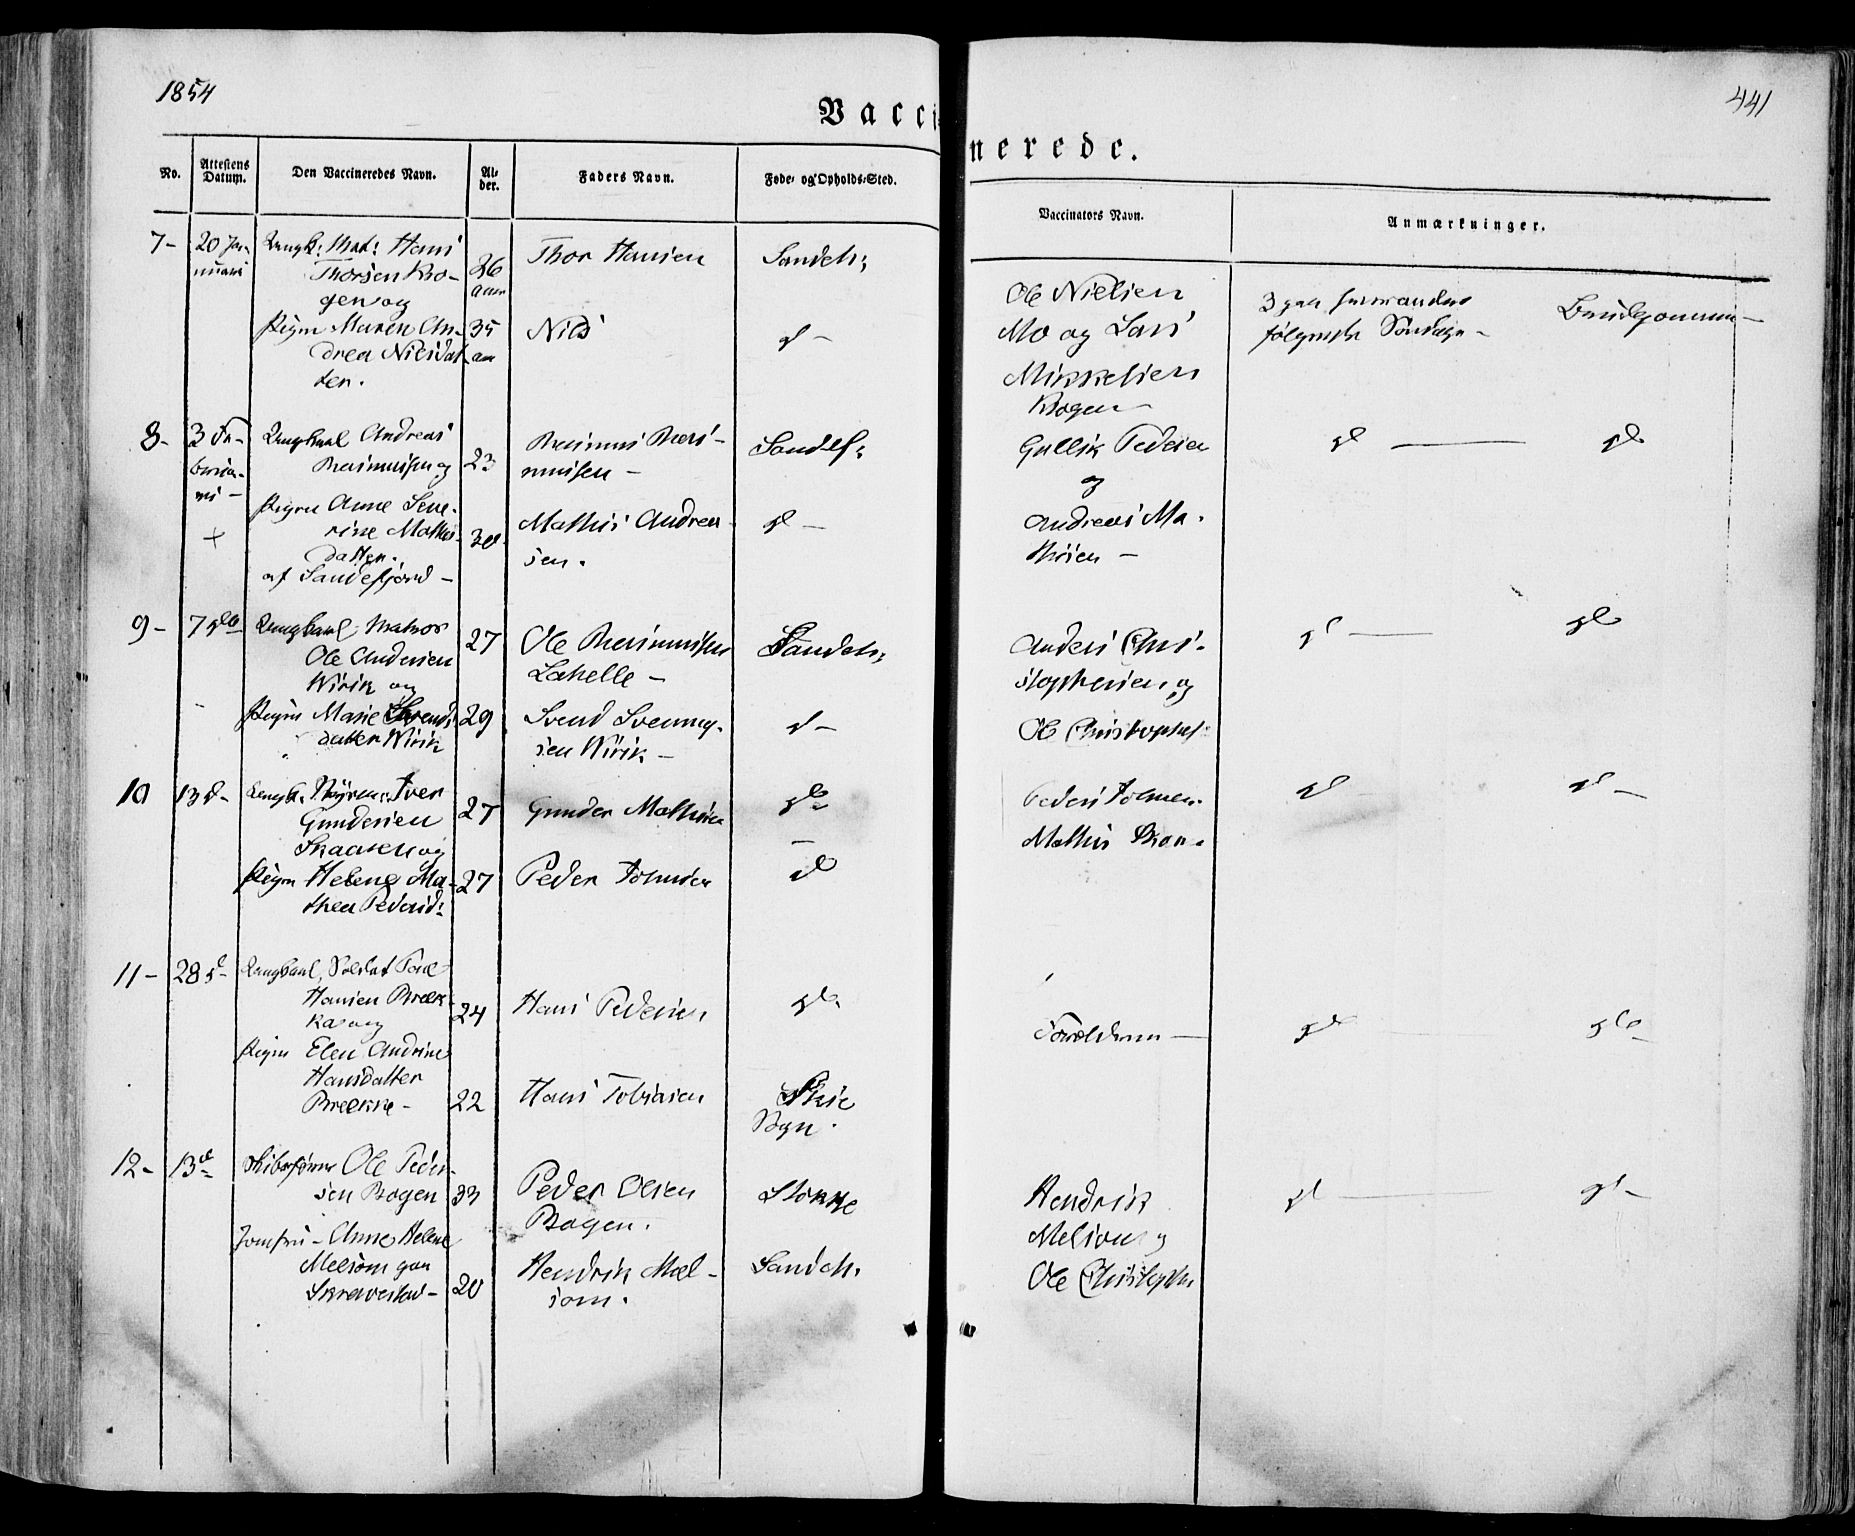 1854
441
Vaccinerede.
No.
Attestens Datum.
Den Vaccineredes Navn.
Alder.
Faders Navn.
Føde- og Opholds-Sted.
Vaccinators Navn.
Anmærkninger.
7-
20 Januari
Ungk: Mat: Hans
Thorsen Kro-
gen og
Pigen Maren An-
drea Nilsdat-
ter.
26
aar
35
aar
Thor Hansen
Nils
Sandeh:
d -
Ole Nielsen
Mo og Lars
Mikkelsen
Krogen
3 paa hinanden
følgende Søndage -
8-
3 Fe-
brua-
ri -
Ungkarl Andreas
Rasmussen og
Pigen Anne Seve-
rine Mathis-
datter.
af Sandefjord -
23
30
Rasmus Ras-
mussen -
Mathis Andrea-
sen.
Sandef:
d -
Gullik Pedersen
og
Andreas Ma-
thisen -
d
d
9-
7 d
Ungkarl Matros
Ole Andersen
Wirik og
Pigen Marie Svends
datter Wirik
27
29
Ole Rasmussen
Lahelle -
Svend Svenning-
sen Wirik -
Sandeh:
d -
Anders Chri-
stophersen og
Ole Christophers:
d
d
10
13 d -
Ungk. Iver
Gundersen
Skaaren og
Pigen Helene Ma-
thea Pedersd:
27
27
Gunder Mathisen
Peder
d
d
Peder
Mathis
d
d -
11-
28 d -
Ungkarl, Soldat Poul
Hansen Bræk-
ka og
Pigen Elen Andrine
Hansdatter
Brække -
24
22
Hans Pedersen
Hans Tobiasen
d
Skie
Sogn.
Forældrene -
d
d -
12-
13 d
Skibsfører Ole Peder-
sen Bogen
Jomfru - Anne Helene
Melsom paa
Skravestad -
33
20
Peder Olsen
Bogen.
Hendrik Mel-
som.
Stokke
Sandeh.
Hendrik
Melsom og
Ole Christopher
d
d -